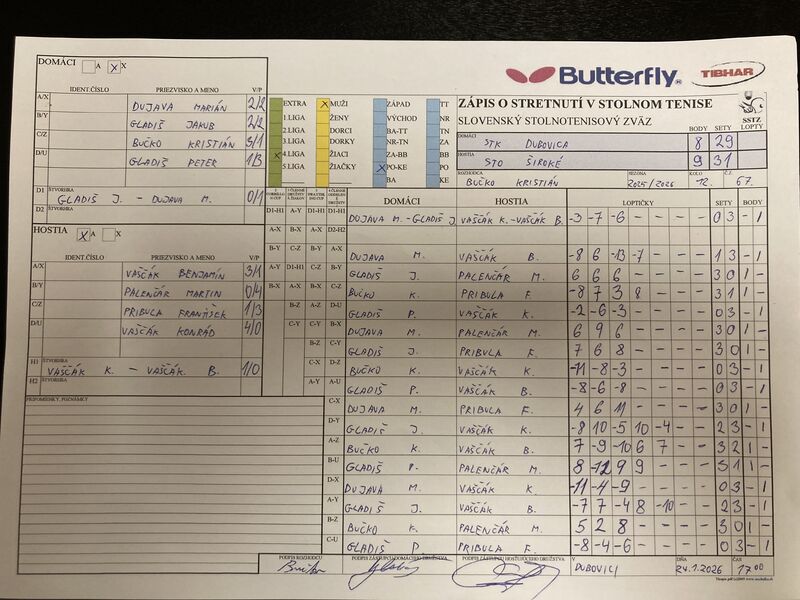 DOMÁCI A X X
IDENT.ČÍSLO PRIEZVISKO A MENO V/P
A/X DUJAVA MARIÁN 2/2
B/Y GLADIŠ JAKUB 2/2
C/Z BUČKO KRISTIÁN 3/1
D/U GLADIŠ PETER 1/3
D1 ŠTVORHRA GLADIŠ J. - DUJAVA M. 0/1
D2
HOSTIA X A X
IDENT.ČÍSLO PRIEZVISKO A MENO V/P
A/X VAŠČÁK BENJAMÍN 3/1
B/Y PALENČÁR MARTIN 0/4
C/Z PRIBULA FRANTIŠEK 1/3
D/U VAŠČÁK KONRÁD 4/0
H1 ŠTVORHRA VAŠČÁK K. - VAŠČÁK B. 1/0
H2
PRIPOMIENKY, POZNÁMKY
Butterfly TIBHAR
EXTRA X MUŽI ZÁPAD TT
1.LIGA ŽENY VÝCHOD NR
2.LIGA DORCI BA-TT TN
3.LIGA DORKY NR-TN ZA
X 4.LIGA ŽIACI ZA-BB BB
5.LIGA ŽIAČKY X PO-KE PO
BA KE
ZÁPIS O STRETNUTÍ V STOLNOM TENISE
SLOVENSKÝ STOLNOTENISOVÝ ZVÄZ SSTZ
BODY SETY LOPTY
DOMÁCI STK DUBOVICA 8 29
HOSTIA STO ŠIROKÉ 9 31
ROZHODCA BUČKO KRISTIÁN SEZÓNA 2025/2026 KOLO 12. Č.Z. 67.
DOMÁCI HOSTIA LOPTIČKY SETY BODY
D1-H1 A-Y D1-H1 D1-H1 DUJAVA M. - GLADIŠ J. VAŠČÁK K. - VAŠČÁK B. -3 -7 -6 - - 0 3 - 1
A-X B-X A-X D2-H2
B-Y C-Z B-Y A-X DUJAVA M. VAŠČÁK B. -8 6 -13 -7 - 1 3 - 1
A-Y D1-H1 C-Z B-Y GLADIŠ J. PALENČÁR M. 6 6 6 - - 3 0 1 -
B-X A-X B-X C-Z BUČKO K. PRIBULA F. -8 7 3 8 - 3 1 1 -
B-Z A-Z D-U GLADIŠ P. VAŠČÁK K. -2 -6 -3 - - 0 3 - 1
C-Y C-Y A-Y DUJAVA M. PALENČÁR M. 6 9 6 - - 3 0 1 -
B-Z B-Z GLADIŠ J. PRIBULA F. 7 6 8 - - 3 0 1 -
C-X C-U BUČKO K. VAŠČÁK K. -11 -8 -3 - - 0 3 - 1
A-Y D-X GLADIŠ P. VAŠČÁK B. -8 -6 -8 - - 0 3 - 1
DUJAVA M. PRIBULA F. 4 6 11 - - 3 0 1 -
D-Y GLADIŠ J. VAŠČÁK K. -8 10 -5 10 -4 2 3 - 1
A-Z BUČKO K. VAŠČÁK B. 7 -9 -10 6 7 3 2 1 -
B-U GLADIŠ P. PALENČÁR M. 8 -12 9 9 - 3 1 1 -
D-X DUJAVA M. VAŠČÁK K. -11 -4 -9 - - 0 3 - 1
A-Y GLADIŠ J. VAŠČÁK B. -7 7 -4 8 -10 2 3 - 1
B-Z BUČKO K. PALENČÁR M. 5 2 8 - - 3 0 1 -
C-U GLADIŠ P. PRIBULA F. -8 -4 -6 - - 0 3 - 1
PODPIS ROZHODCU PODPIS ZÁSTUPCU DOMÁCEHO DRUŽSTVA PODPIS ZÁSTUPCU HOSŤUJÚCEHO DRUŽSTVA V DUBOVICI DŇA 24.1.2026 ČAS 17 00